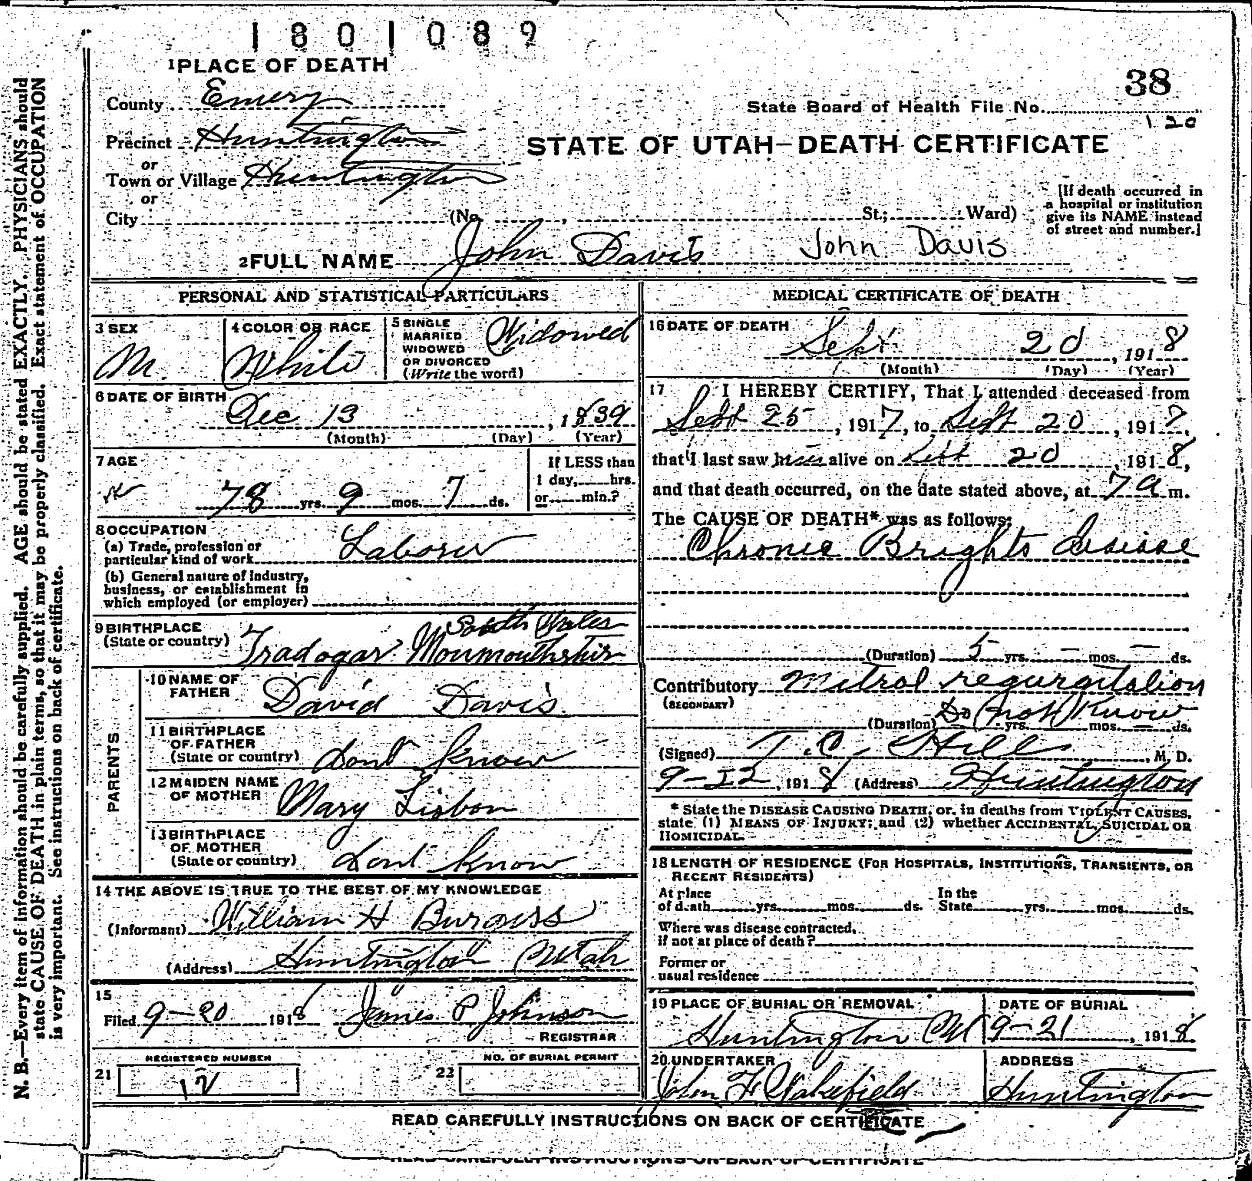 1801089
1 PLACE OF DEATH
38
County Emery
State Board of Health File No.
120
Precinct Huntington
STATE OF UTAH—DEATH CERTIFICATE
or
Town or Village Huntington
or
City (No. , St.; Ward)
[If death occurred in
a hospital or institution
give its NAME instead
of street and number.]
2 FULL NAME John Davis John Davis
PERSONAL AND STATISTICAL PARTICULARS
3 SEX
M.
4 COLOR OR RACE
White
5 SINGLE
MARRIED
WIDOWED
OR DIVORCED
(Write the word)
Widowed
6 DATE OF BIRTH
Dec 13, 1839
(Month) (Day) (Year)
7 AGE
78 yrs. 9 mos. 7 ds.
If LESS than
1 day, hrs.
or min.?
8 OCCUPATION
(a) Trade, profession or
particular kind of work Laborer
(b) General nature of Industry,
business, or establishment in
which employed (or employer)
9 BIRTHPLACE
(State or country)
South Wales
Tradogar Monmouthshire
PARENTS
10 NAME OF
FATHER David Davis
11 BIRTHPLACE
OF FATHER
(State or country) dont know
12 MAIDEN NAME
OF MOTHER Mary Lisbon
13 BIRTHPLACE
OF MOTHER
(State or country) dont know
14 THE ABOVE IS TRUE TO THE BEST OF MY KNOWLEDGE
(Informant) William H Burgess
(Address) Huntington Utah
15
Filed 9-20 1918 James P Johnson
REGISTRAR
REGISTERED NUMBER
21 12
NO. OF BURIAL PERMIT
22
MEDICAL CERTIFICATE OF DEATH
16 DATE OF DEATH
Sept 20, 1918
(Month) (Day) (Year)
17 I HEREBY CERTIFY, That I attended deceased from
Sept 25, 1917, to Sept 20, 191
that I last saw him alive on Sept 20, 1918,
and that death occurred, on the date stated above, at 7 a m.
The CAUSE OF DEATH* was as follows:
Chronic Brights disease
(Duration) 5 yrs. — mos. — ds.
Contributory Mitral regurgitation
(SECONDARY)
Do not Know
(Duration) yrs. mos. ds.
(Signed) T.C. Hill, M. D.
9-22, 1918 (Address) Huntington
* State the DISEASE CAUSING DEATH, or, in deaths from VIOLENT CAUSES,
state (1) MEANS OF INJURY; and (2) whether ACCIDENTAL, SUICIDAL OR
HOMICIDAL.
18 LENGTH OF RESIDENCE (FOR HOSPITALS, INSTITUTIONS, TRANSIENTS, OR
RECENT RESIDENTS)
At place
of death yrs. mos. ds.
In the
State yrs. mos. ds.
Where was disease contracted,
if not at place of death?
Former or
usual residence
19 PLACE OF BURIAL OR REMOVAL
Huntington Ut
DATE OF BURIAL
9-21, 1918
20 UNDERTAKER
John F Wakefield
ADDRESS
Huntington
READ CAREFULLY INSTRUCTIONS ON BACK OF CERTIFICATE
READ CAREFULLY INSTRUCTIONS ON BACK OF CERTIFICATE
N. B.—Every item of information should be carefully supplied. AGE should be stated EXACTLY. PHYSICIANS should
state CAUSE OF DEATH in plain terms, so that it may be properly classified. Exact statement of OCCUPATION
is very important. See instructions on back of certificate.